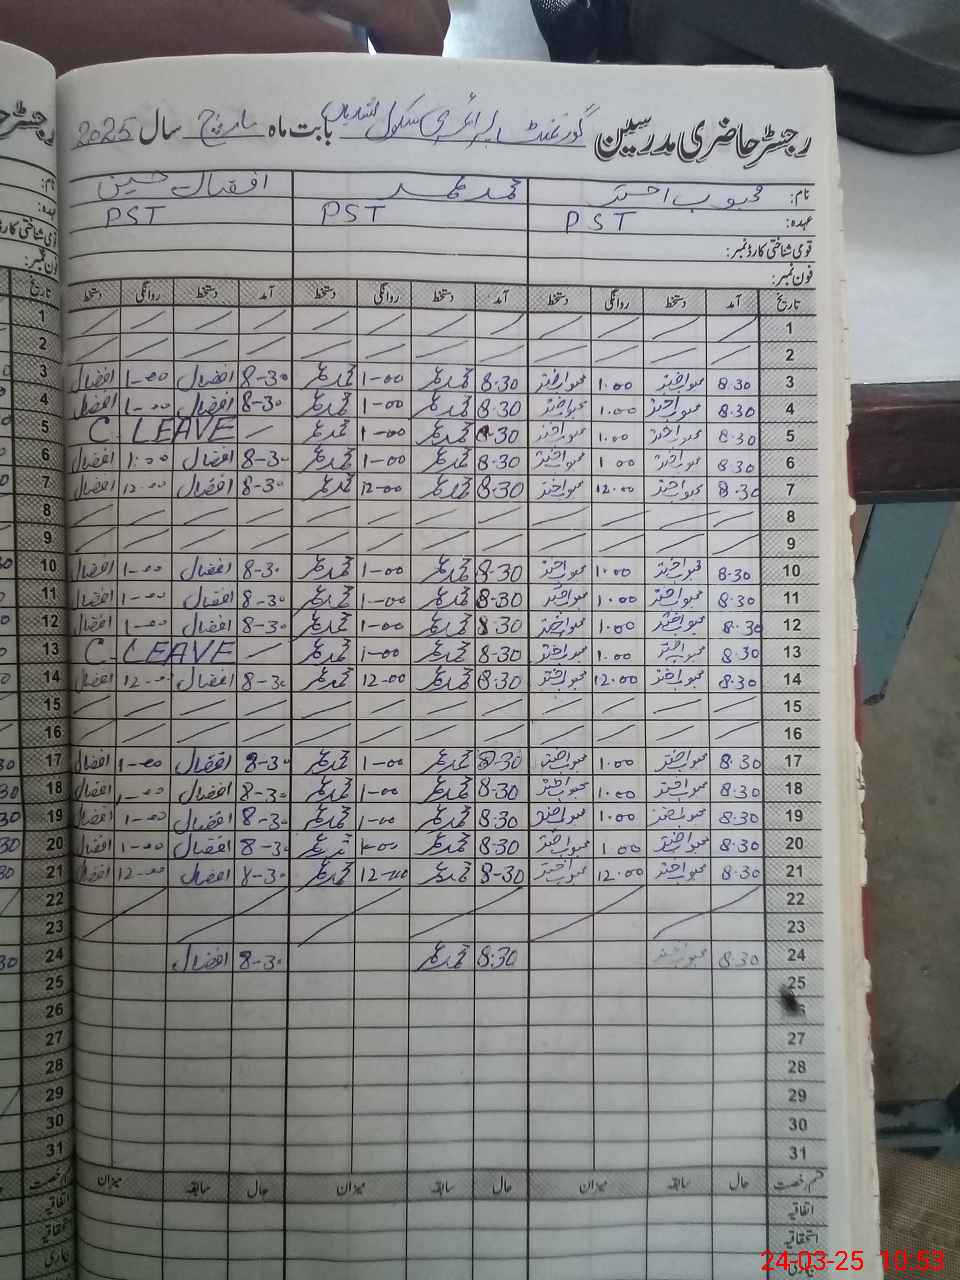 رجسٹر حاضری مدرسین گورنمنٹ پرائمری سکول بابت ماہ مارچ سال 2025
نام: محبوب اختر محمد عمر افضال حسین
عہدہ: PST PST PST
قومی شناختی کارڈ نمبر:
فون نمبر:
تاریخ آمد دستخط روانگی دستخط آمد دستخط روانگی دستخط آمد دستخط روانگی دستخط
1
2
3 8.30 محبوب اختر 1.00 محبوب اختر 8.30 محمد عمر 1-00 محمد عمر 8-30 افضال 1-00 افضال
4 8.30 محبوب اختر 1.00 محبوب اختر 8.30 محمد عمر 1-00 محمد عمر 8-30 افضال 1-00 افضال
5 8.30 محبوب اختر 1.00 محبوب اختر 8.30 محمد عمر 1-00 محمد عمر C. LEAVE
6 8.30 محبوب اختر 1.00 محبوب اختر 8.30 محمد عمر 1-00 محمد عمر 8-30 افضال 1-00 افضال
7 8.30 محبوب اختر 12.00 محبوب اختر 8.30 محمد عمر 12-00 محمد عمر 8-30 افضال 12-00 افضال
8
9
10 8.30 محبوب اختر 1.00 محبوب اختر 8-30 محمد عمر 1-00 محمد عمر 8-30 افضال 1-00 افضال
11 8.30 محبوب اختر 1.00 محبوب اختر 8-30 محمد عمر 1-00 محمد عمر 8-30 افضال 1-00 افضال
12 8.30 محبوب اختر 1.00 محبوب اختر 8-30 محمد عمر 1-00 محمد عمر 8-30 افضال 1-00 افضال
13 8.30 محبوب اختر 1.00 محبوب اختر 8-30 محمد عمر 1-00 محمد عمر C. LEAVE
14 8.30 محبوب اختر 12.00 محبوب اختر 8.30 محمد عمر 12-00 محمد عمر 8-30 افضال 12-00 افضال
15
16
17 8.30 محبوب اختر 1.00 محبوب اختر 8-30 محمد عمر 1-00 محمد عمر 8-30 افضال 1-00 افضال
18 8.30 محبوب اختر 1.00 محبوب اختر 8-30 محمد عمر 1-00 محمد عمر 8-30 افضال 1-00 افضال
19 8.30 محبوب اختر 1.00 محبوب اختر 8.30 محمد عمر 1-00 محمد عمر 8-30 افضال 1-00 افضال
20 8.30 محبوب اختر 1.00 محبوب اختر 8.30 محمد عمر 1-00 محمد عمر 8-30 افضال 1-00 افضال
21 8.30 محبوب اختر 12.00 محبوب اختر 8-30 محمد عمر 12-00 محمد عمر 8-30 افضال 12-00 افضال
22
23
24 8.30 محبوب اختر 8:30 محمد عمر 8-30 افضال
25
26
27
28
29
30
31
قسم رخصت حال سابقہ میزان حال سابقہ میزان حال سابقہ میزان
اتفاقیہ
استحقاقیہ
24-03-25 10:53